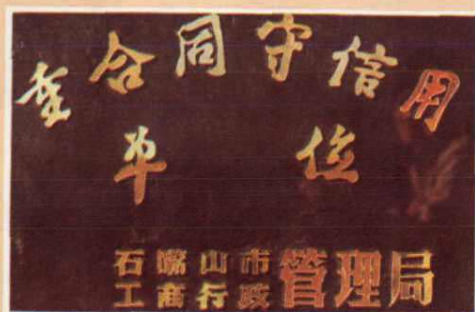 重合同守信用
单位
石嘴山市
工商行政管理局